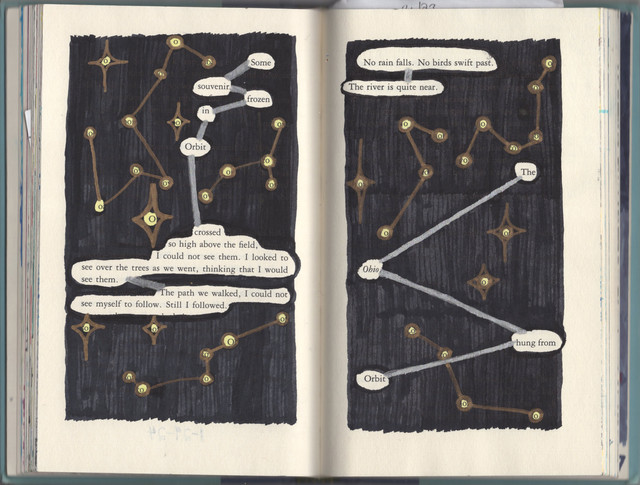 Some
souvenir
frozen
in
Orbit
crossed
so high above the field,
I could not see them. I looked to
see over the trees as we went, thinking that I would
see them.
The path we walked, I could not
see myself to follow. Still I followed.
No rain falls. No birds swift past.
The river is quite near.
The
Ohio
hung from
Orbit